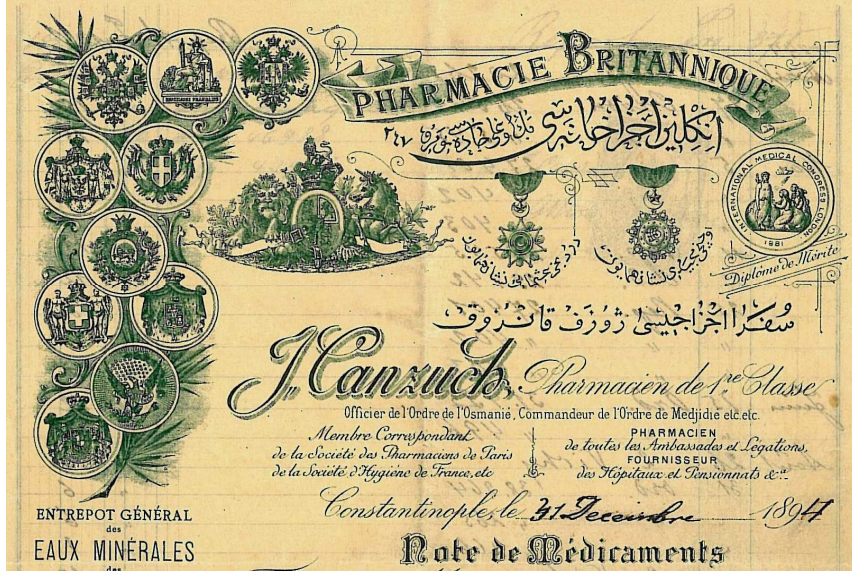 PHARMACIE BRITANNIQUE
انکلیز اجزاخانه سی
٢٤٧
INTERNATIONAL MEDICAL CONGRESS LONDON
1881
Diplôme de Mérite
سفرا اجزاجیسی ژوزف قانزوق
J. Canzuch, Pharmacien de 1.re Classe
Officier de l'Ordre de l'Osmanié, Commandeur de l'Ordre de Medjidié etc.etc.
Membre Correspondant
de la Société des Pharmaciens de Paris
de la Société d'Hygiène de France, etc
PHARMACIEN
de toutes les Ambassades et Légations,
FOURNISSEUR
des Hôpitaux et Pensionnats &.
Constantinople, le 31 Decembre 1894
ENTREPOT GÉNÉRAL
des
EAUX MINÉRALES
des
Note de Médicaments